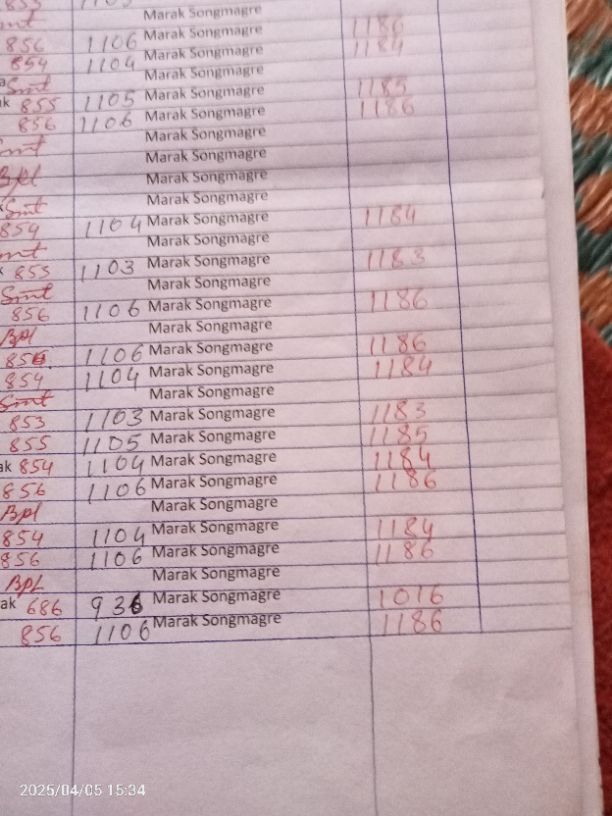 Marak Songmagre
Smt Marak Songmagre 1186
856 1106 Marak Songmagre 1184
854 1104 Marak Songmagre
Smt Marak Songmagre 1185
ak 855 1105 Marak Songmagre 1186
856 1106 Marak Songmagre
Smt Marak Songmagre
Marak Songmagre
Bpl Marak Songmagre
Smt Marak Songmagre
854 1104 Marak Songmagre 1184
Smt Marak Songmagre
853 1103 Marak Songmagre 1183
Smt Marak Songmagre
856 1106 Marak Songmagre 1186
Bpl Marak Songmagre
856 1106 Marak Songmagre 1186
854 1104 Marak Songmagre 1184
Smt Marak Songmagre
853 1103 Marak Songmagre 1183
855 1105 Marak Songmagre 1185
ak 854 1104 Marak Songmagre 1184
856 1106 Marak Songmagre 1186
Bpl Marak Songmagre
854 1104 Marak Songmagre 1184
856 1106 Marak Songmagre 1186
BpL Marak Songmagre
ak 686 936 Marak Songmagre 1016
856 1106 Marak Songmagre 1186
2025/04/05 15:34